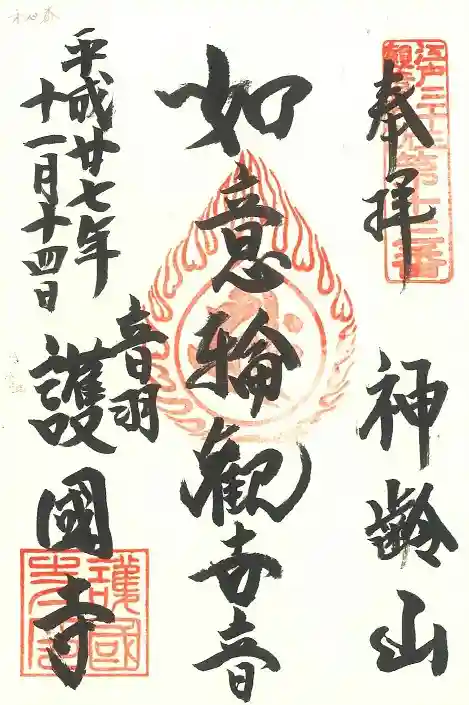 奉拝
神齢山
江戸三十三観音札所第十三番
如意輪観世音
平成廿七年
十一月十四日
音羽
護國寺